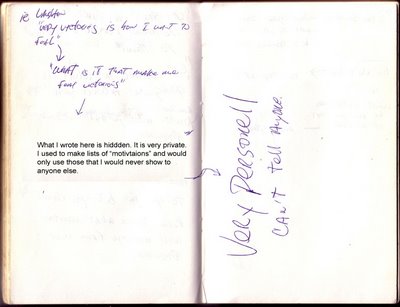 "very victorious is how I want to
feel"
"WHAT is it that make me
feel victorious"
What I wrote here is hiddden. It is very private.
I used to make lists of "motivtaions" and would
only use those that I would never show to
anyone else.
Very Personell
CAn't tell Anyone.